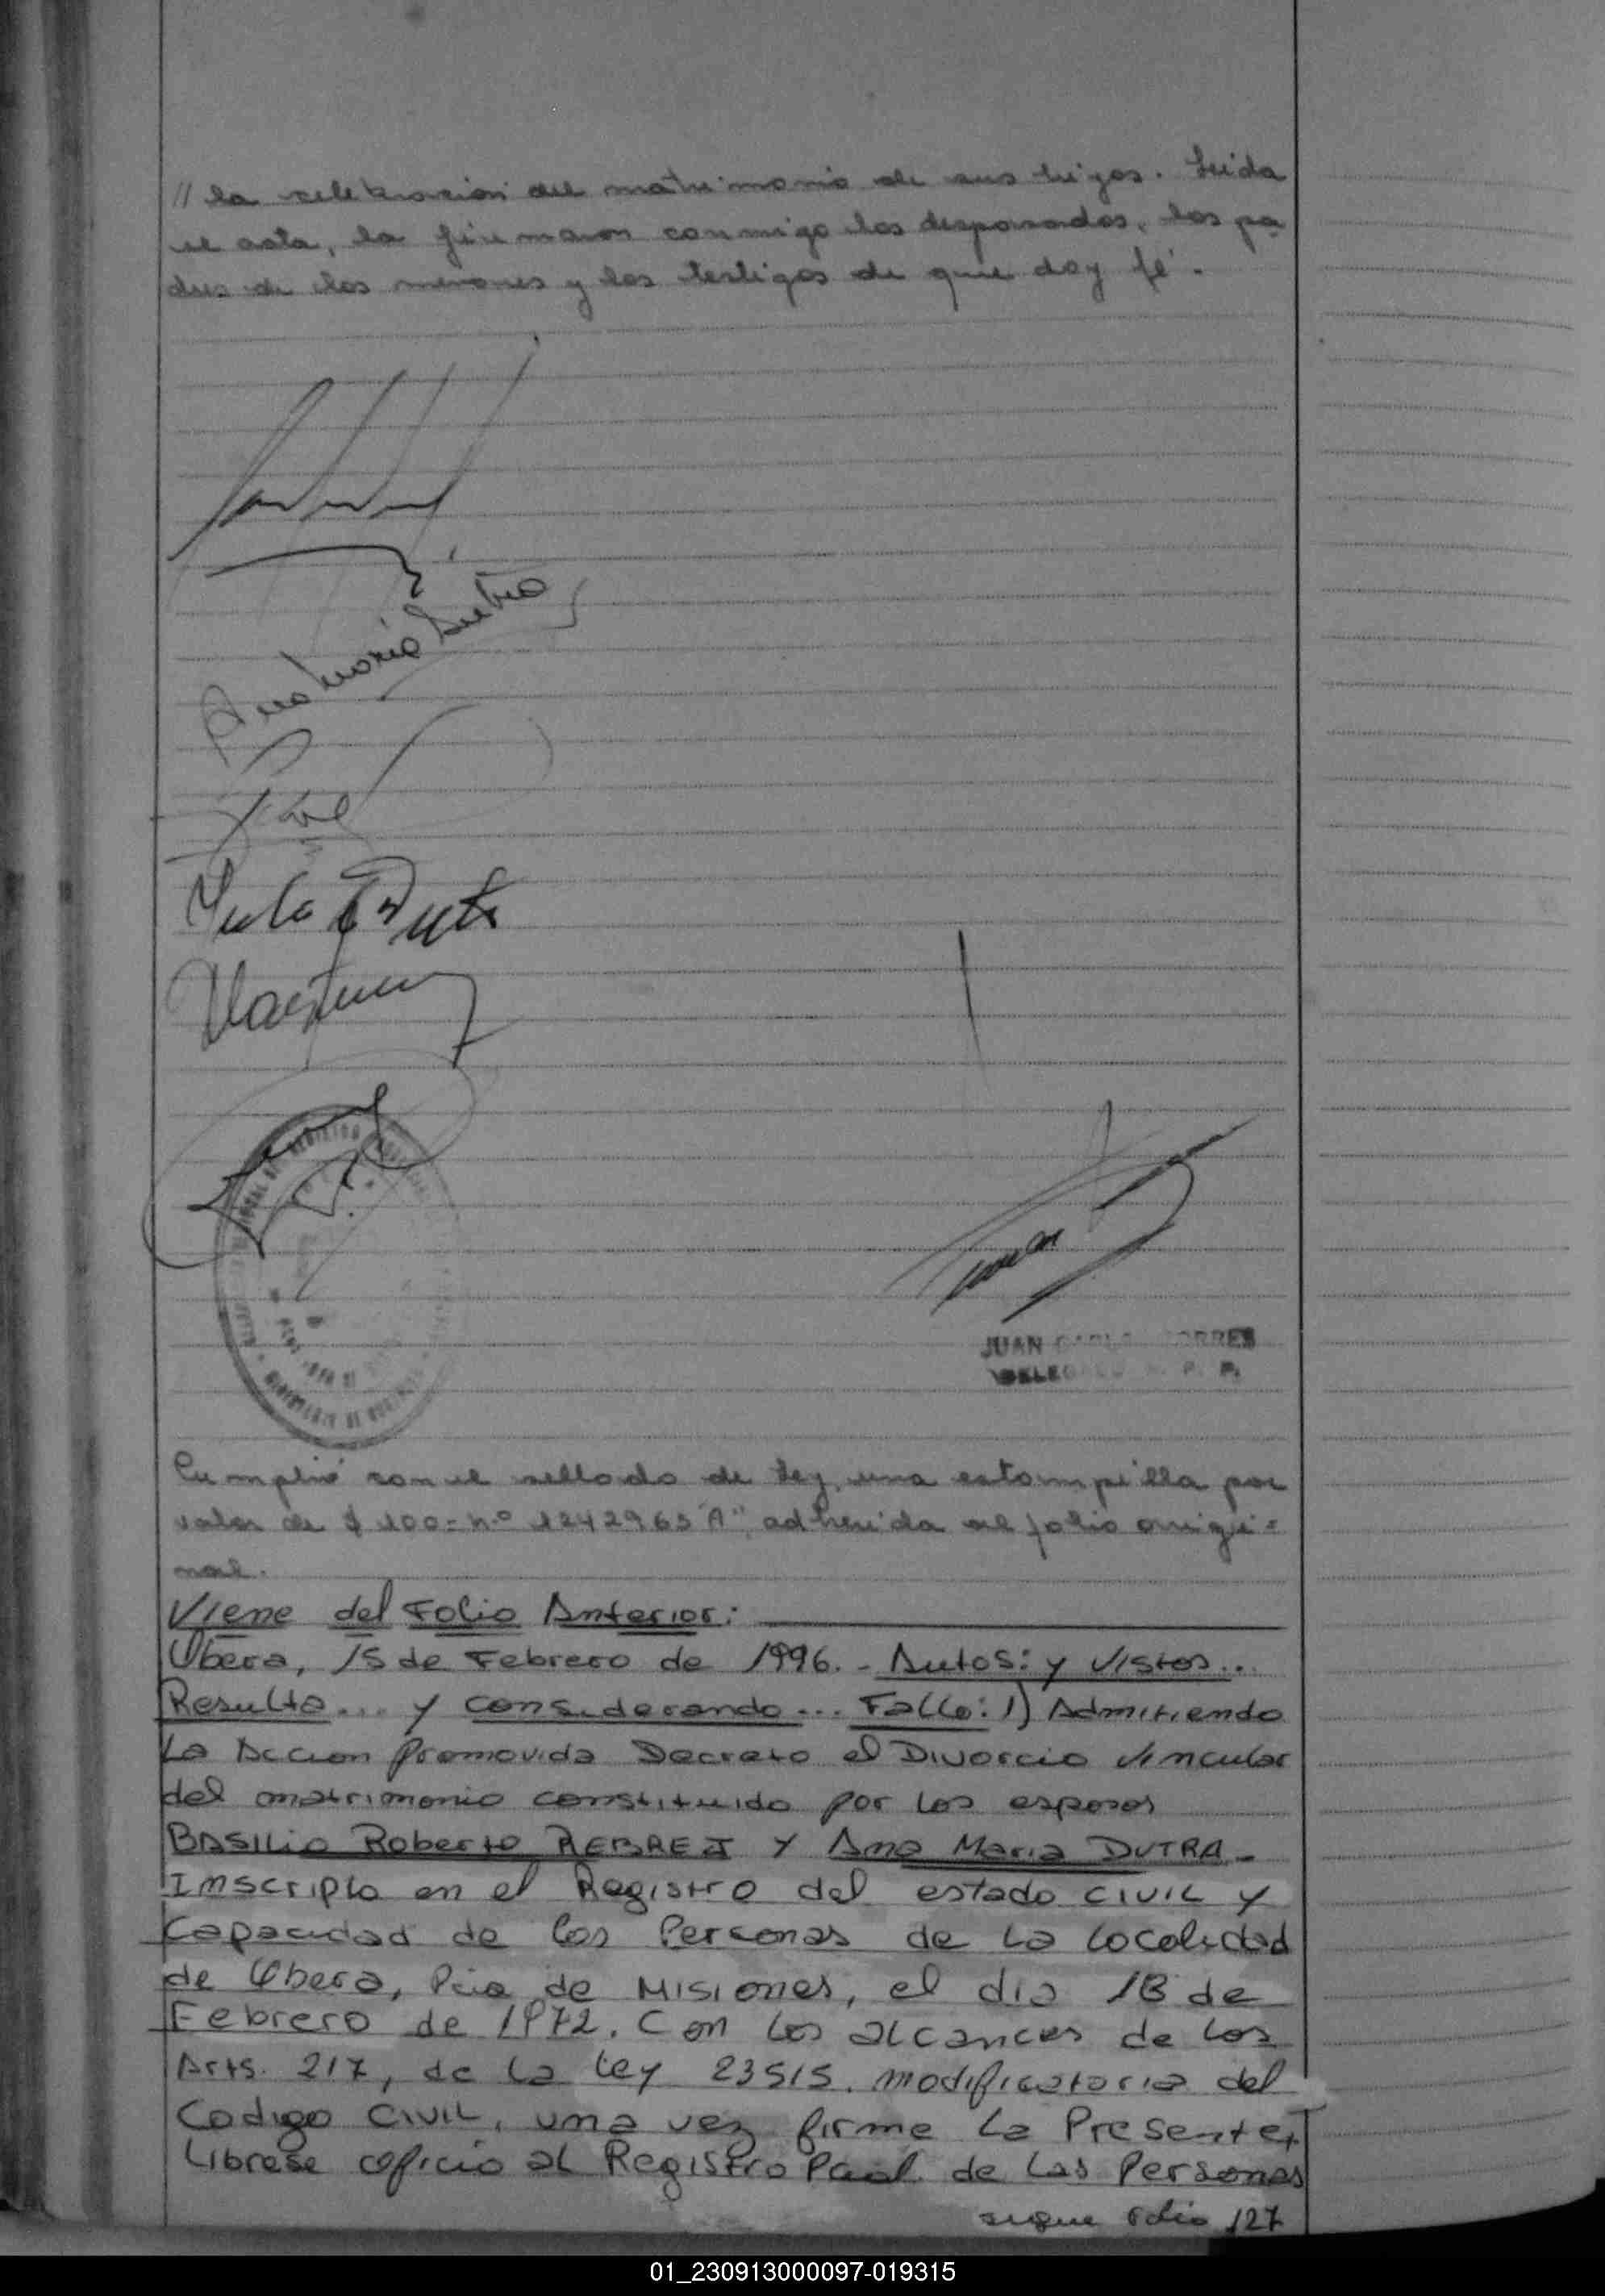 // la celebracion del matrimonio de sus hijos. Leida
el acta, la firmaron conmigo los desposados, los pa
dres de los menores y los testigos de que doy fé.
Ana Maria Dutra
JUAN TORRES
Cumplió con el sellado de Ley, una estampilla por
valor de $ 100= n.º 1242965 "A", adherida al folio origi=
nal.
Viene del Folio Anterior:
Obera, 15 de Febrero de 1996. - Autos: y Vistos...
Resulta... y considerando... Fallo: 1) Admitiendo
La Accion Promovida Decreto el Divorcio Vincular
del matrimonio constituido por los esposos
BASILIO Roberto REBREJ Y Ana Maria DUTRA -
Inscripto en el Registro del estado CIVIL y
Capacidad de los Personas de La Localidad
de Obera, Pcia de Misiones, el dia 18 de
Febrero de 1972. Con los alcances de los
Arts. 217, de la Ley 23515. modificatoria del
Codigo CIVIL, una vez firme La Presente,
Librese oficio al Registro Pcial. de Las Personas
sigue folio 127
01_230913000097-019315